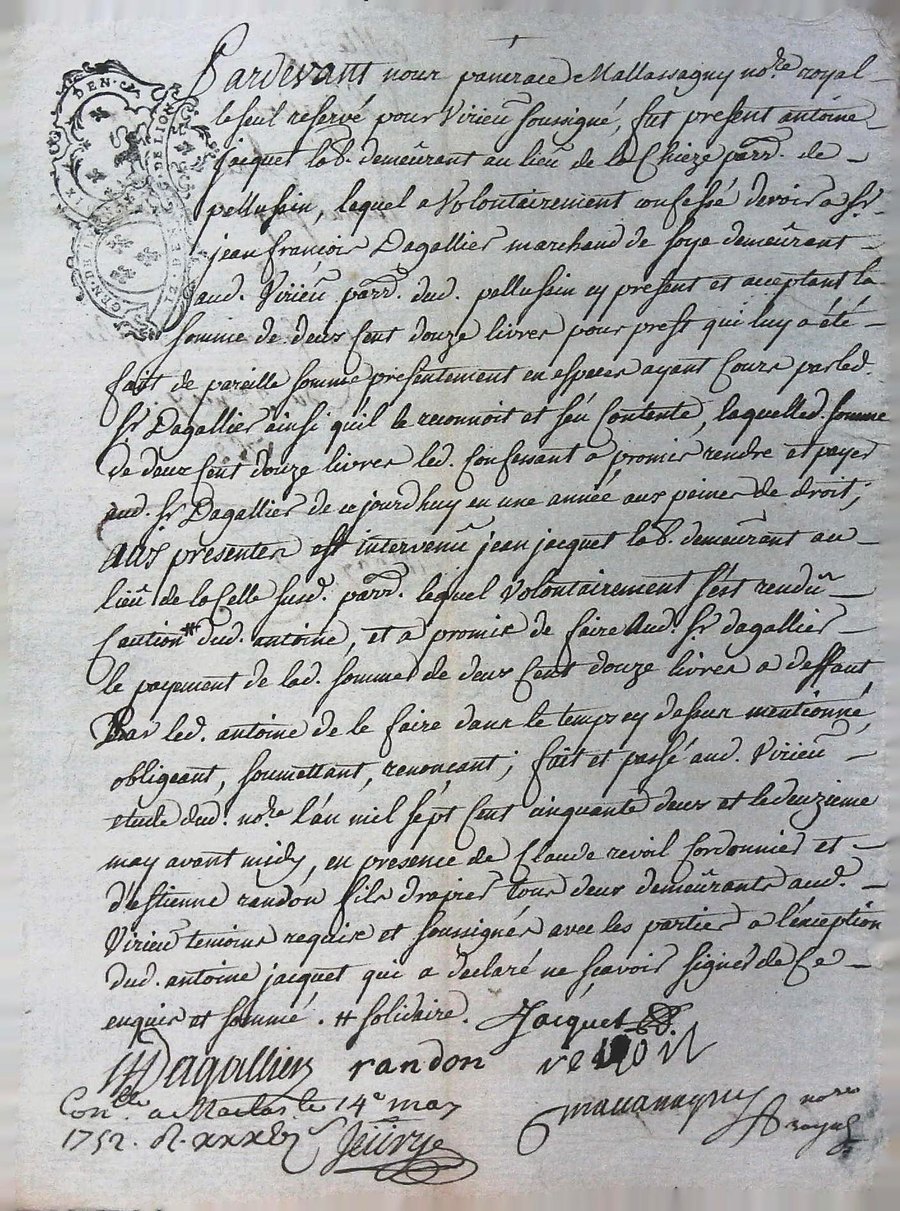 GEN. DE LION
GEN. DE LION ET DEN
Pardevant nous pancrace Mallassagny nore. royal
le seul reservé pour Virieu soussigné, fut present antoine
jacquet lab. demeurant au lieu de la Chieze parr. de
pellussin, lequel a Volontairement confessé devoir a Sr.
jean francois Dagallier marchand de soye demeurant
aud. Virieu parr. dud. pellussin cy present et acceptant la
somme de deux Cent douze livres pour prest qui luy a été
fait de pareille somme presentement en especes ayant Cours par led.
Sr. Dagallier ainsi qu'il le reconnoit et s'en Contente, laquelled. somme
de deux Cent douze livres led. Confessant a promis rendre et payer
aud. Sr. Dagallier de ce jourdhuy en une année aux peines de droit;
aux presentes est intervenu jean jacquet lab. demeurant au
lieu de la Celle susd. parr. lequel Volontairement s'est rendu
Caution # dud. antoine, et a promis de faire Aud. Sr. dagallier
le payement de lad. somme de deux Cent douze livres a deffaut
Par led. antoine de le faire dans le temps cy dessus mentionné,
obligeant, soumettant, renonçant; fait et passé aud. Virieu
etude dud. nore. l'an mil sept Cent cinquante deux et le deuzieme
may avant midy, en presence de Claude revoil Cordonnier et
d'estienne randon fils drapier tous deux demeurants aud.
Virieu temoins requis et soussignés avec les parties a l'éxception
dud. antoine jacquet qui a declaré ne scavoir signer de Ce
enquis et sommé. # solidaire. Jacquet
Dagallier randon revoil
Conlle a Maclas le 14e may
1752. R. xxx
Mallassagny nore
royal